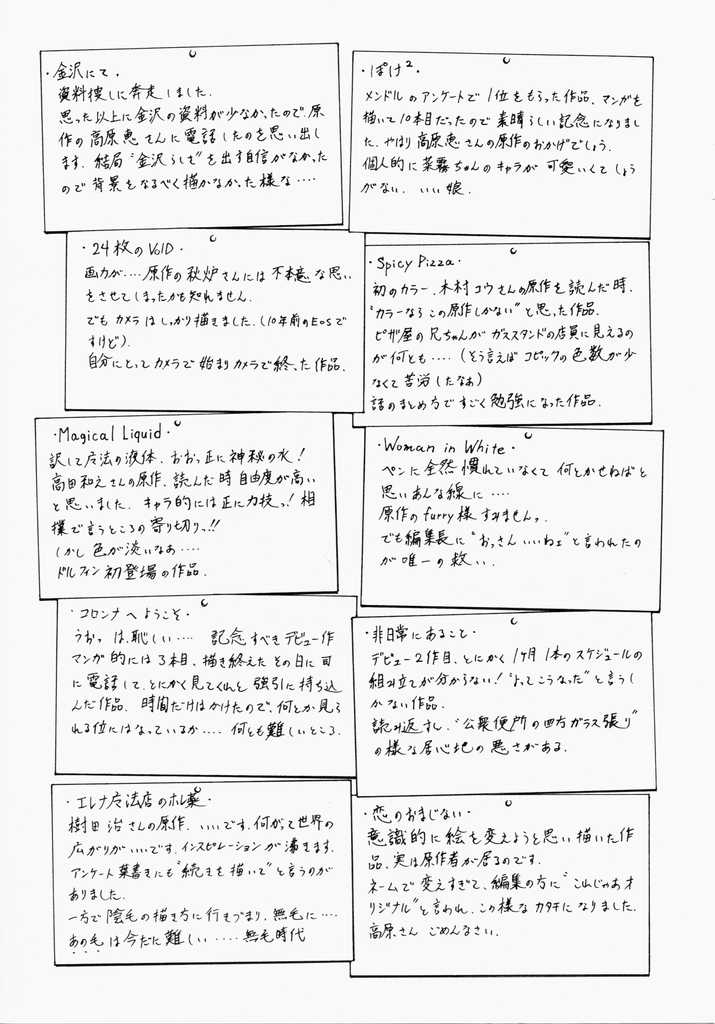 ・金沢にて・
資料捜しに奔走しました.
思った以上に金沢の資料が少なかったので、原
作の高原恵さんに電話したのを思い出し
ます. 結局“金沢らしさ”を出す自信がなかった
ので背景をなるべく描かなかった様な‥‥
・ぽけ²・
メンドルのアンケートで1位をもらった作品、マンガを
描いて10本目だったので素晴らしい記念になりまし
た. やはり高原恵さんの原作のおかげでしょう.
個人的に菜霧ちゃんのキャラが可愛いくてしょう
がない. いい娘.
・24枚のVOID・
画力が‥‥原作の秋炉さんには不本意な思い
をさせてしまったかも知れません.
でもカメラはしっかり描きました.(10年前のEOSで
すけど).
自分にとってカメラで始まりカメラで終った作品.
・Spicy Pizza・
初のカラー. 木村コウさんの原作を読んだ時.
“カラーならこの原作しかない”と思った作品.
ピザ屋の兄ちゃんがガススタンドの店員に見えるの
が何とも‥‥(そう言えばコピックの色数が少
なくて苦労したなあ)
話のまとめ方ですごく勉強になった作品.
・Magical Liquid・
訳して魔法の液体. おおっ正に神秘の水!
高田和えさんの原作. 読んだ時自由度が高い
と思いました. キャラ的には正に力技っ! 相
撲で言うところの寄り切りっ!!
しかし色が淡いなぁ‥‥
ドルフィン初登場の作品.
・Woman in White・
ペンに全然慣れていなくて何とかせねばと
思いあんな線に‥‥
原作のfurry様すみませんっ.
でも編集長に“おっさんいいねェ”と言われたの
が唯一の救い.
・コロンナへようこそ・
うおっ は、恥しい‥‥ 記念すべきデビュー作
マンガ的には3本目、描き終えたその日に司
に電話して、とにかく見てくれと強引に持ち込
んだ作品. 時間だけはかけたので、何とか見ら
れる位にはなっているか‥‥何とも難しいところ.
・非日常にあること・
デビュー2作目、とにかく1ヶ月1本のスケジュールの
組み立てが分からない!“よってこうなった”と言うし
かない作品.
読み返すし、“公衆便所の四方ガラス張り”
の様な居心地の悪さがある.
・エレナ魔法店のホレ薬・
樹田治さんの原作. いいです. 何がって世界の
広がりがいいです. インスピレーションが湧きます.
アンケート葉書きにも“続きを描いて”と言うのが
ありました.
一方で陰毛の描き方に行きづまり、無毛に‥‥
あの毛は今だに難しい‥‥無毛時代
・恋のおまじない・
意識的に絵を変えようと思い描いた作
品、実は原作者が居るのです.
ネームで変えすぎて、編集の方に“これじゃあオ
リジナル”と言われ、この様なカタチになりました.
高原さん ごめんなさい.